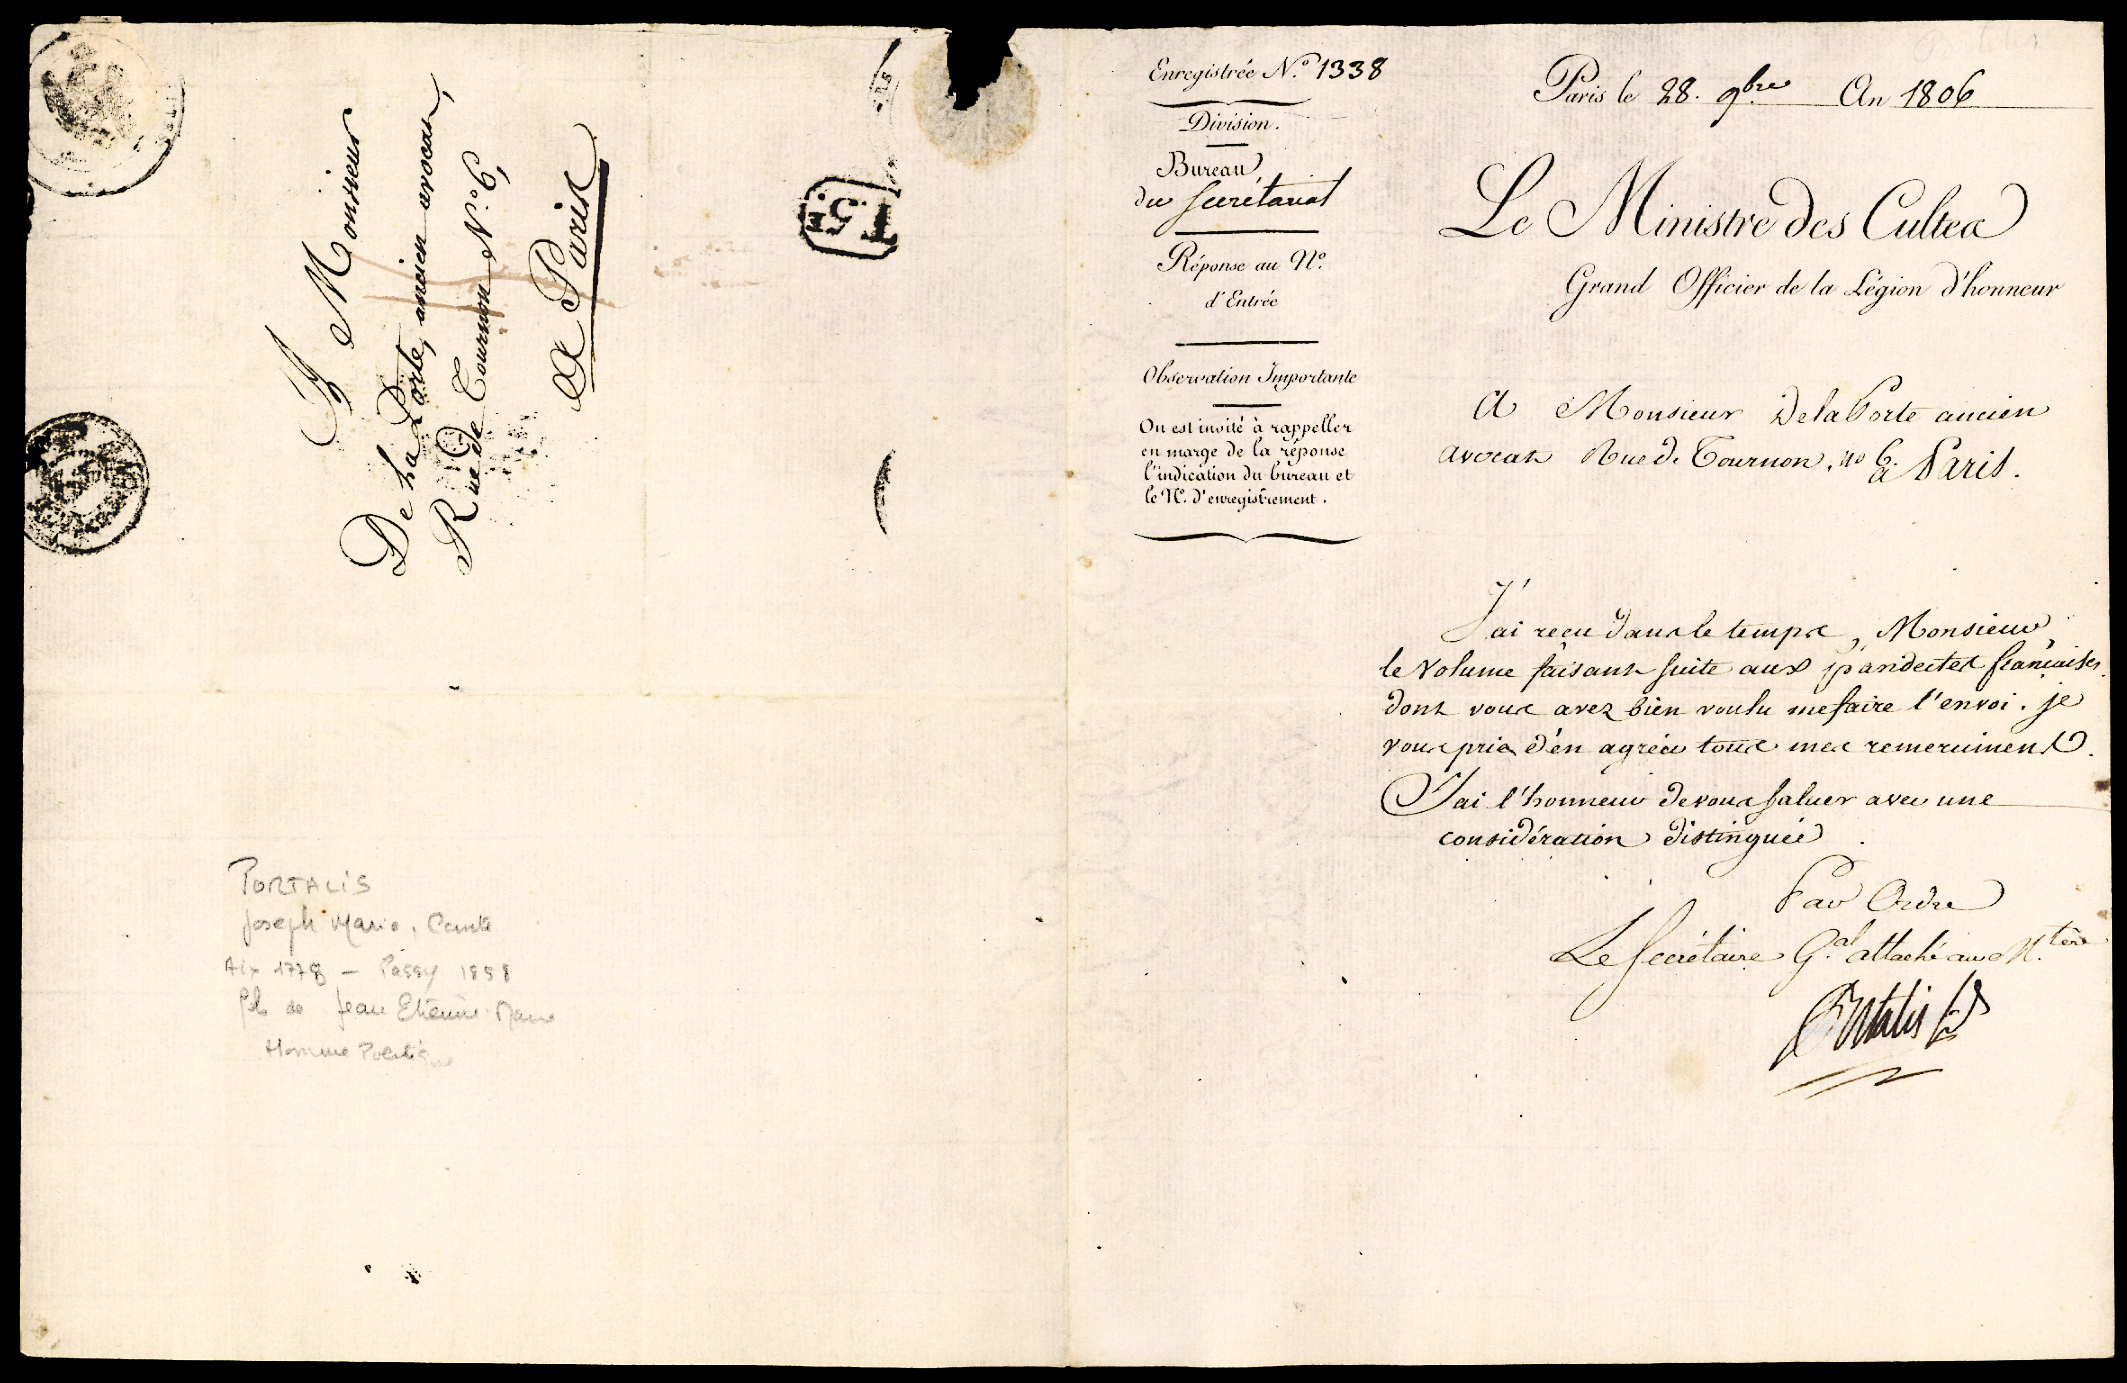 A Monsieur
De La Porte, ancien avocat,
Rue de Tournon N.o 6,
A Paris
T.5E.
PORTALIS
Joseph Marie, Comte
Aix 1778 – Passy 1858
fils de Jean Etienne Marie
Homme Politique
Enregistrée N.o 1338
Division.
Bureau
du Secrétariat
Réponse au N.o
d'Entrée
Observation Importante
On est invité à rappeller
en marge de la réponse
l'indication du bureau et
le N.o d'enregistrement.
Paris le 28. 9bre An 1806
Le Ministre des Cultes
Grand Officier de la Légion d'honneur
A Monsieur Delaporte ancien
avocat Rue de Tournon, no 6. à Paris.
J'ai reçu dans le temps, Monsieur,
le volume faisant suite aux pandectes françaises,
dont vous avez bien voulu me faire l'envoi. je
vous prie d'en agréer tous mes remerciments.
J'ai l'honneur de vous saluer avec une
considération distinguée.
Par Ordre
Le Secrétaire G.al attaché au M.tère
Portalis fs